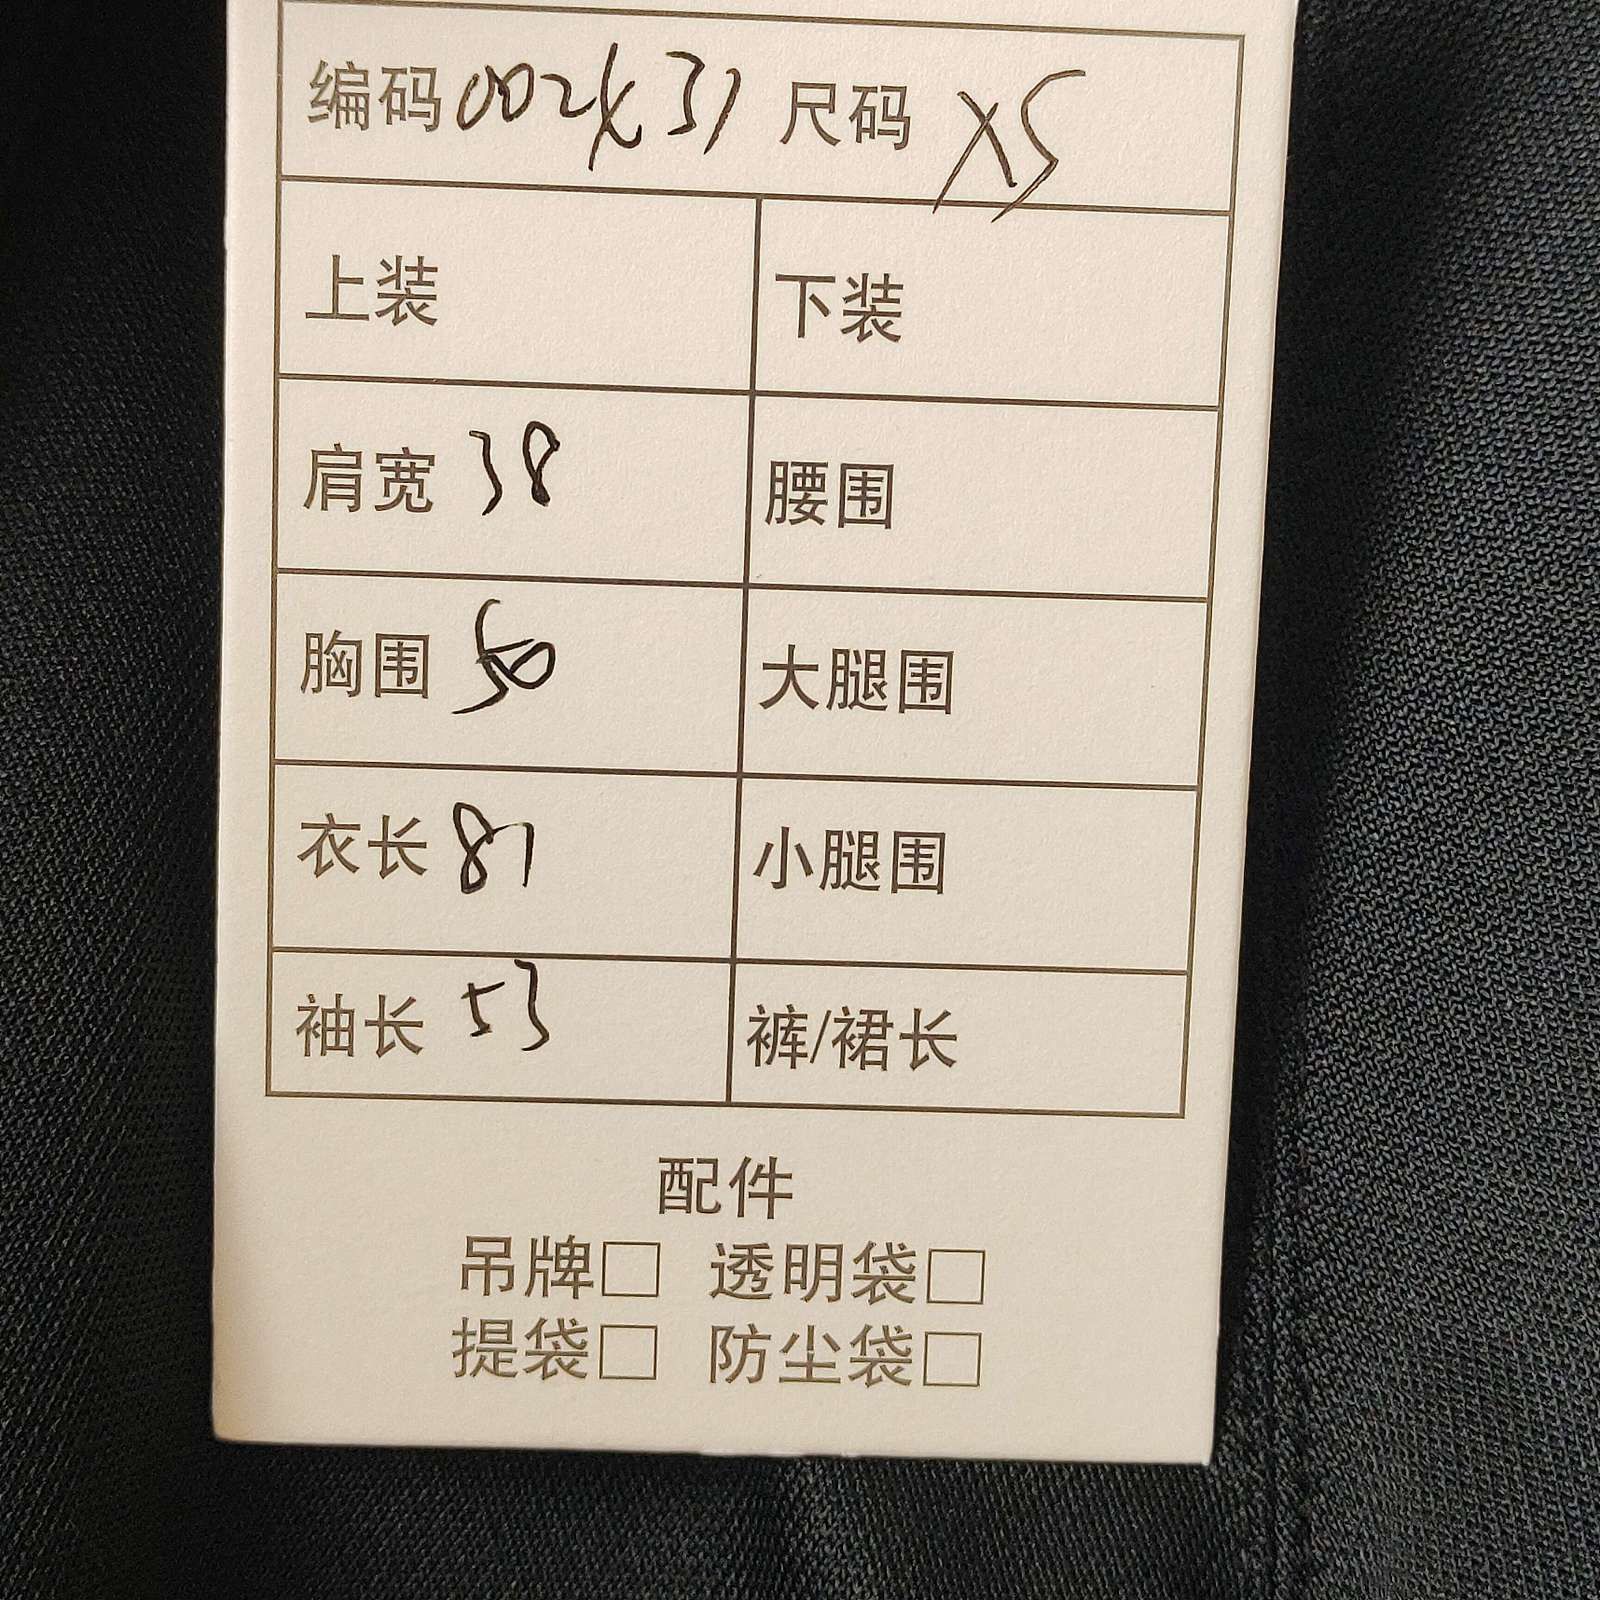 编码 002X31 尺码 XS
上装 下装
肩宽 38 腰围
胸围 50 大腿围
衣长 81 小腿围
袖长 53 裤/裙长
配件
吊牌□ 透明袋□
提袋□ 防尘袋□